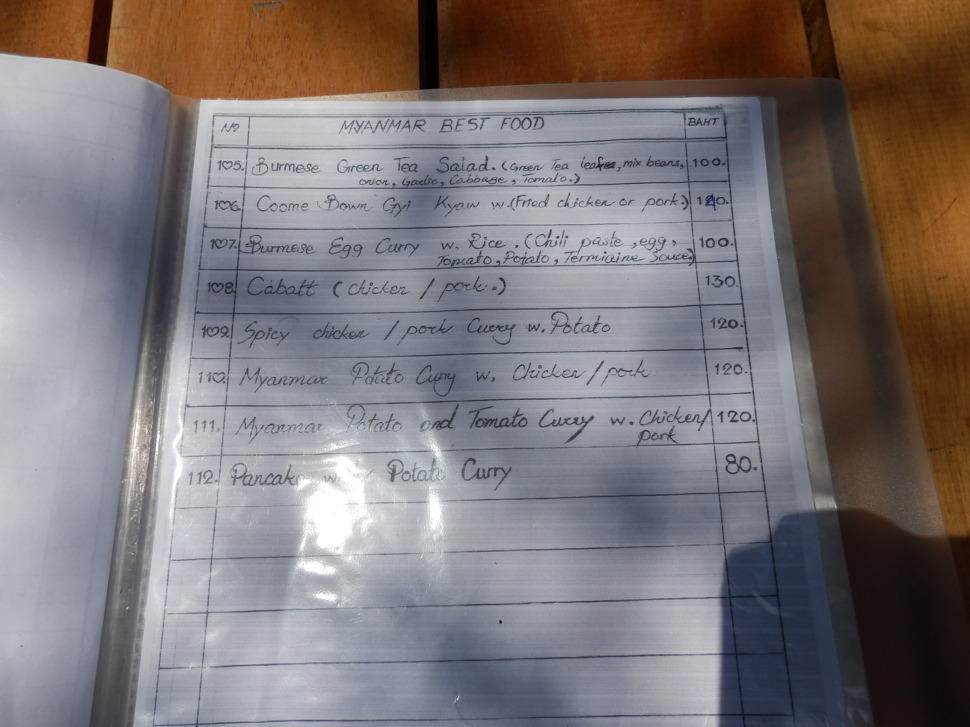 NO MYANMAR BEST FOOD BAHT
105. Burmese Green Tea Salad. (Green Tea leafes, mix beans, 100.
onion, Garlic, Cabbage, Tomato.)
106. Coome Down Gyi Kyaw w. (Fried chicken or pork.)
107. Burmese Egg Curry w. Rice. (Chili paste, egg, 100.
Tomato, Potato, Termicine Souce)
108. Cabatt (chicken / pork.) 130.
109. Spicy chicken / pork Curry w. Potato 120.
110. Myanmar Potato Cury w. Chicken / pork 120.
111. Myanmar Potato and Tomato Curry w. Chicken/ 120.
pork
112. Pancake w. Potato Curry 80.